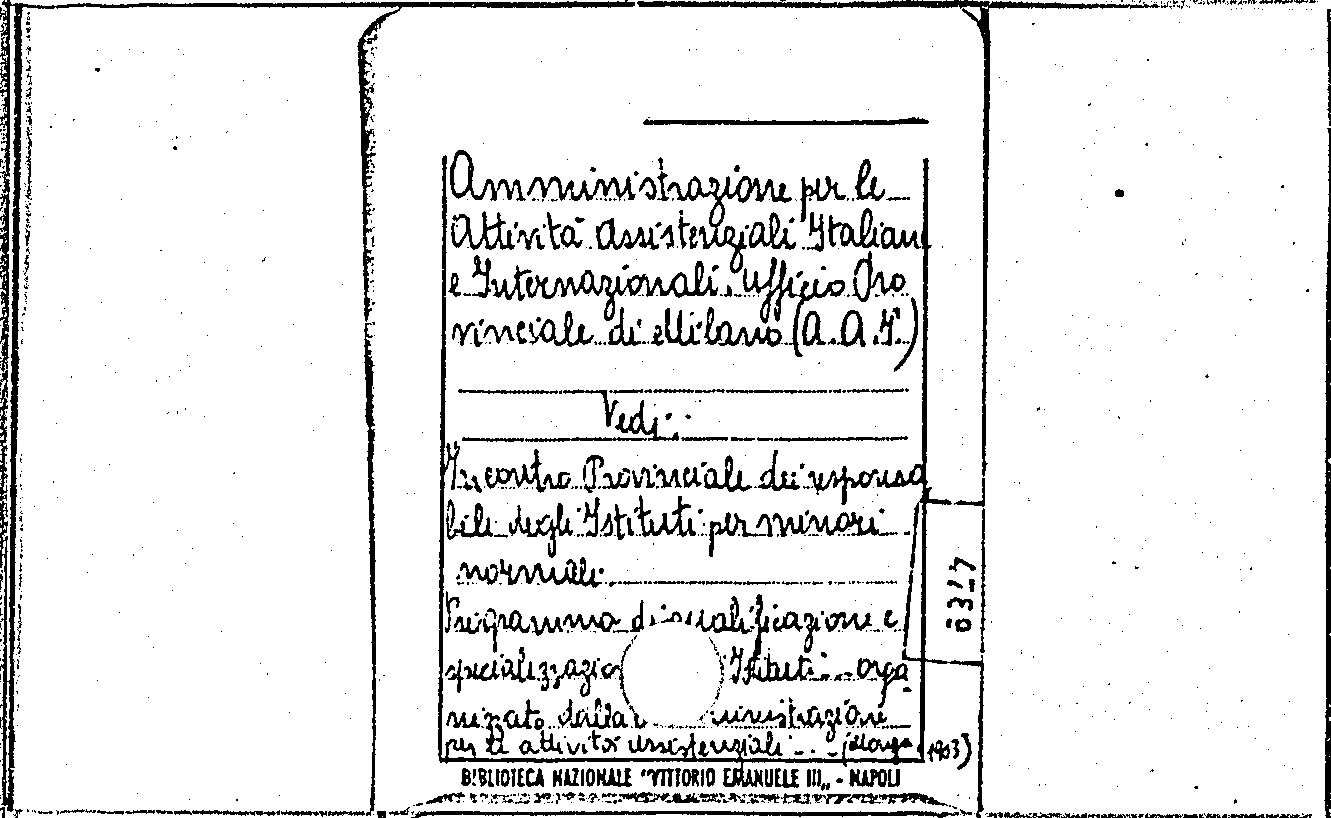 Amministrazione per le
Attività Assistenziali Italiane
e Internazionali. Ufficio Pro
vinciale di Milano (A.A.I.)
Vedi:
Incontro Provinciale dei responsa
bili degli Istituti per minori
normali.
Programma di qualificazione e
specializzazio Istituti... orga
nizzato dalla ministrazione
per le attività assistenziali... (1963)
BIBLIOTECA NAZIONALE "VITTORIO EMANUELE III„ - NAPOLI